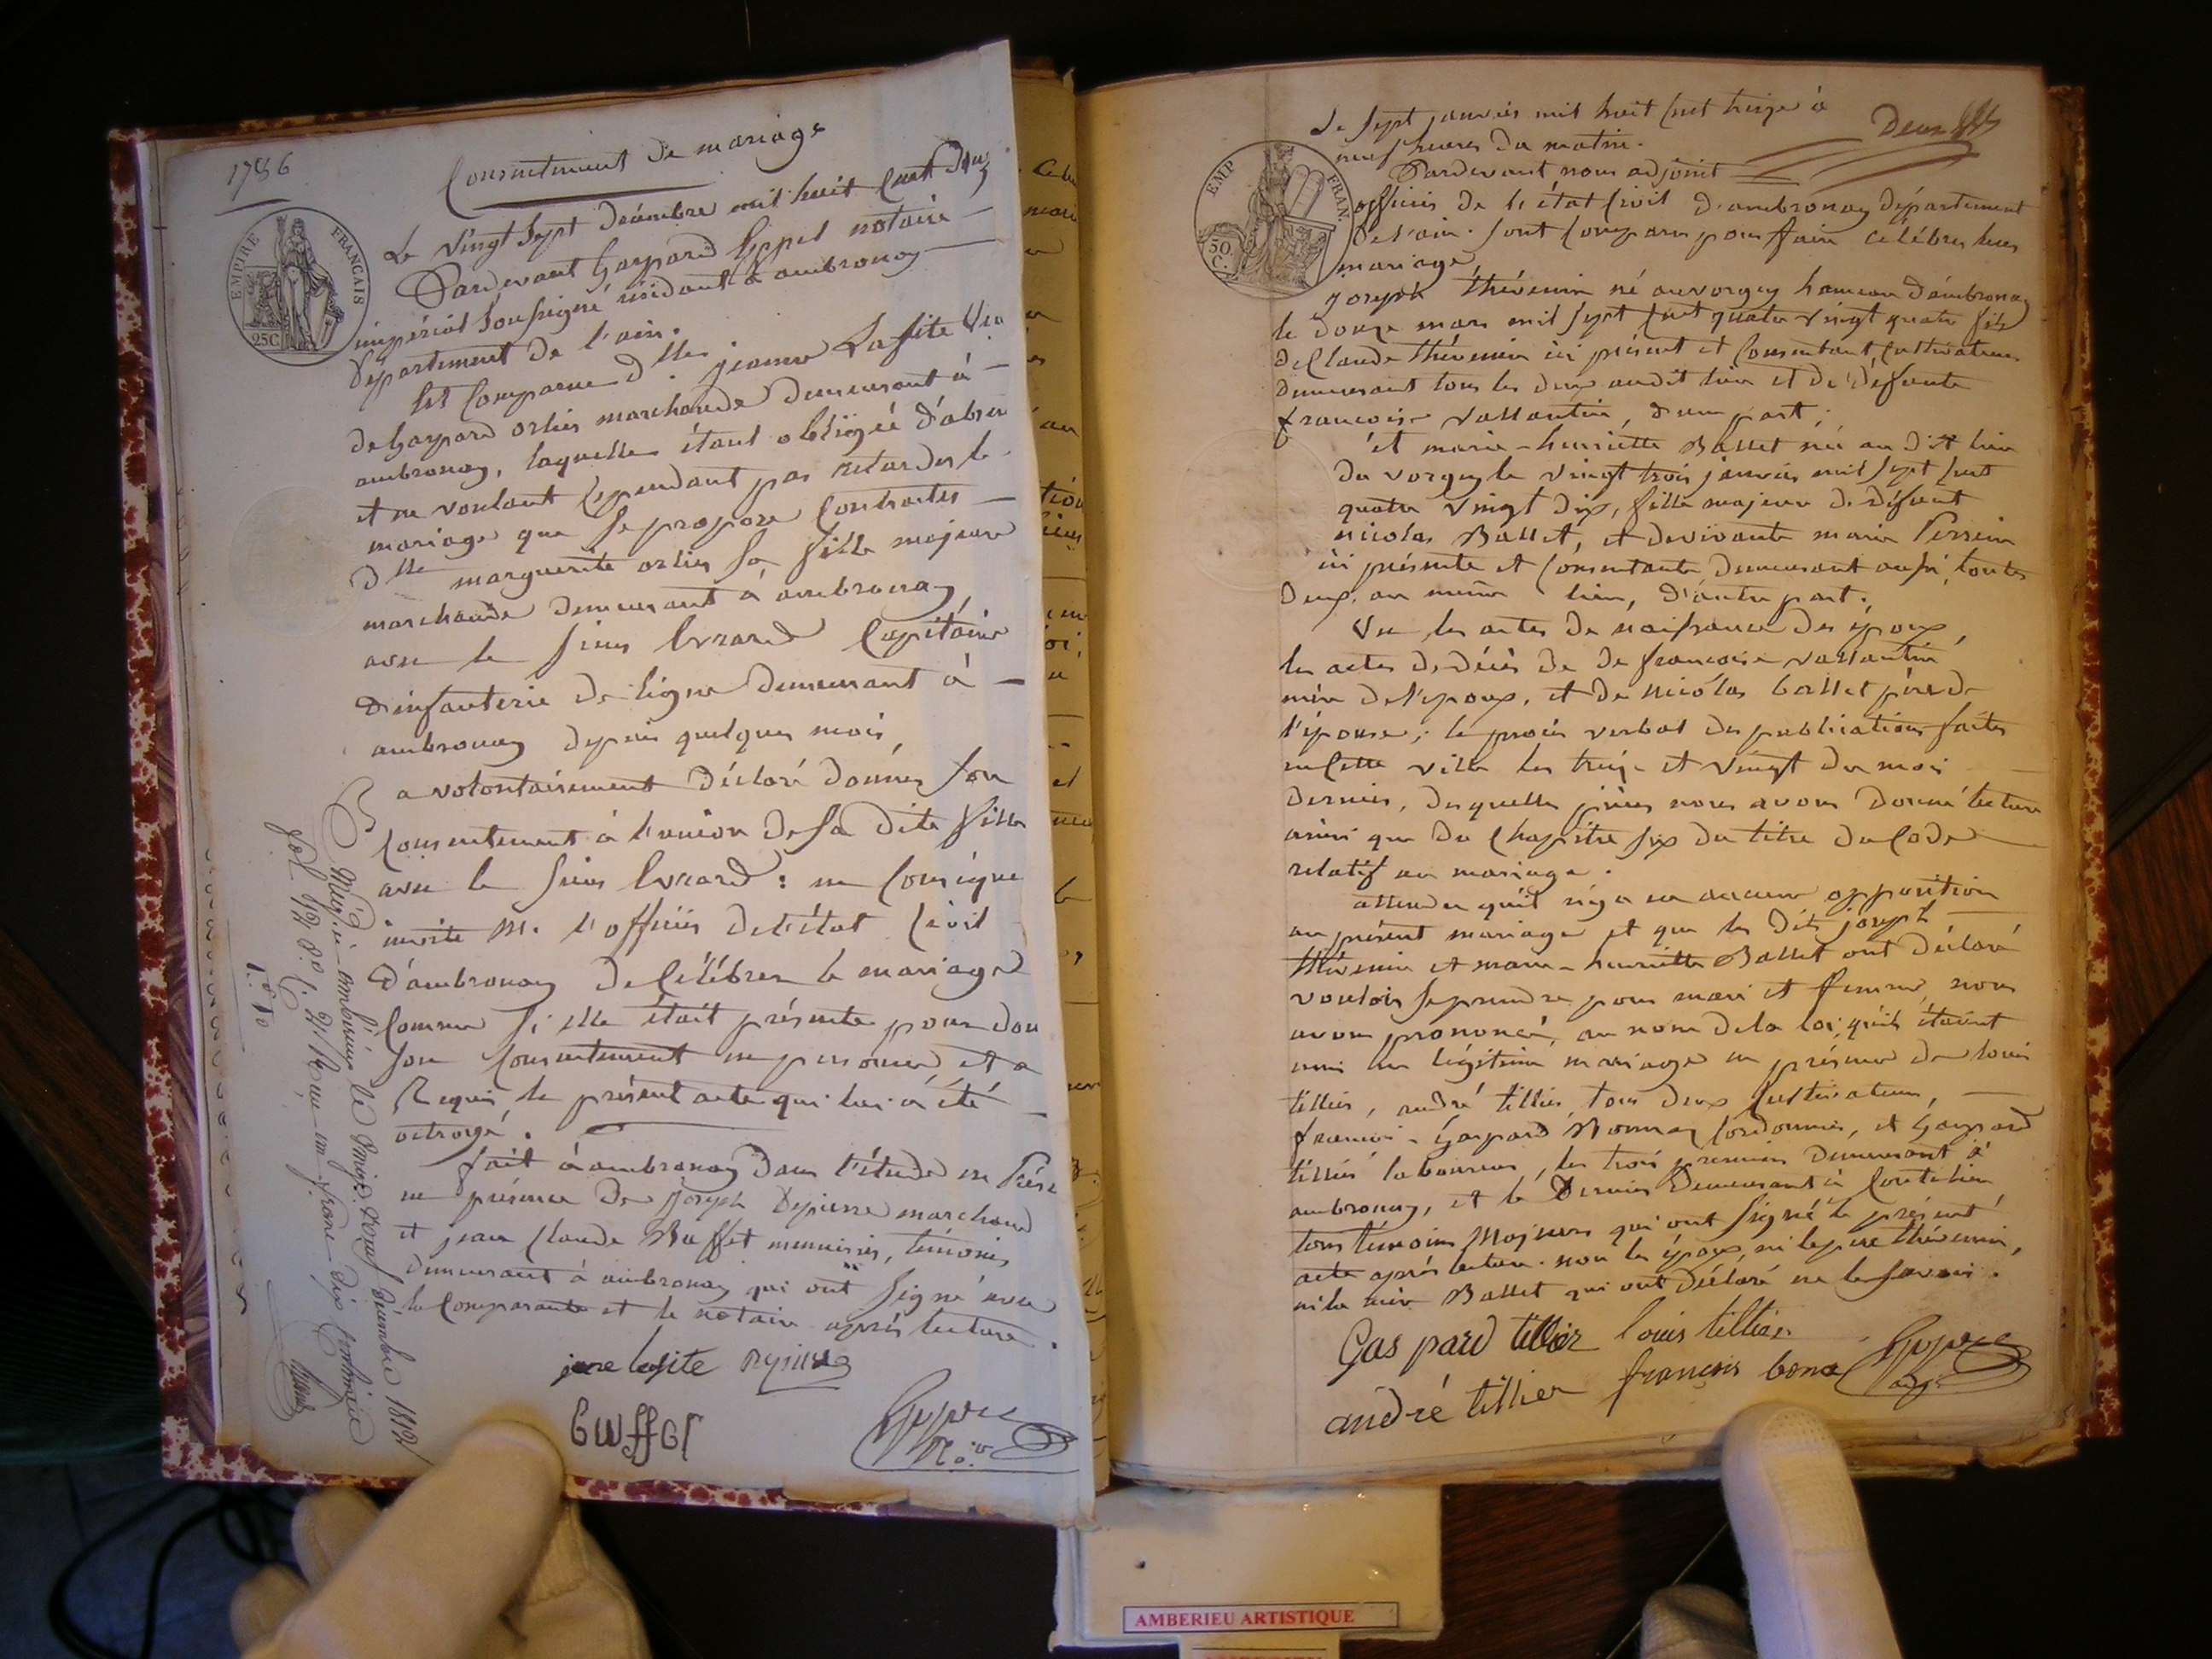 1786
Consentement de mariage
EMPIRE FRANCAIS
25C
Le vingt sept décembre mil huit cent douze
Pardevant Gaspard Gippet notaire
impérial soussigné résidant à ambronay
département de l'ain.
Est comparue dlle jeanne Lafite
de Gaspard orlier marchande demeurant à
ambronay, laquelle étant obligée d'absen
et ne voulant cependant pas retarder le
mariage que se propose contracter
dlle marguerite orlier sa fille majeure
marchande demeurant à ambronay,
avec le sieur Evrard Capitaine
d'infanterie de ligne demeurant à
ambronay depuis quelques mois,
a volontairement déclaré donner son
consentement à l'union de sa dite fille
avec le sieur Evrard: en conséque
invite M. l'officier de l'état civil
d'ambronay de célébrer le mariage
comme si elle était présente pour don
son consentement en personne, et a
Requis le présent acte qui lui a été
octroyé.
fait à ambronay dans l'étude
en présence de joseph Depierre marchand
et jean claude Buffet menuisier, témoins
demeurant à ambronay qui ont signé avec
la comparante et le notaire après lecture.
jene lafite Depierre
buffet
Gippet
No.re
décembre 1812
reçu un franc dix centimes
Deux
Le sept janvier mil huit cent treize à
neuf heures du matin.
EMP FRAN.
50 C.
Pardevant nous adjoint
officier de l'état civil d'ambronay département
de l'ain. sont comparus pour faire célébrer leur
mariage,
joseph thévenin né au vorgey hameau d'ambronay
le douze mars mil sept cent quatre vingt quatre fils
de Claude thévenin ici présent et consentant, cultivateurs
demeurant tous les deux audit lieu et de défunte
françoise Vallantin, d'une part;
et marie-henriette Ballet née au dit lieu
du vorgey le vingt trois janvier mil sept cent
quatre vingt dix, fille majeure de défunt
nicolas Ballet, et de vivante marie Perrin
ici présente et consentante demeurant aussi toutes
deux au même lieu, d'autre part.
Vu les actes de naissance des époux,
les actes de décès de de françoise vallantin
mère de l'époux, et de nicolas ballet père de
l'épouse; le procès verbal des publications faites
en cette ville les treize et vingt du mois
dernier, desquelles pièces nous avons donné lecture
ainsi que du chapitre six du titre du Code
relatif au mariage.
attendu qu'il n'y a eu aucune opposition
au présent mariage et que les dits joseph
thévenin et marie-henriette Ballet ont déclaré
vouloir se prendre pour mari et femme, nous
avons prononcé, au nom de la loi, qu'ils étaient
unis en légitime mariage en présence de louis
tillier, andré tillier, tous deux cultivateurs,
françois-Gaspard Bonnaz cordonnier, et Gaspard
tillier laboureur, les trois premiers demeurant à
ambronay, et le dernier demeurant à
tous témoins Majeurs qui ont signé le présent
acte après lecture. non les époux, ni le père thévenin,
ni la mère Ballet qui ont déclaré ne le savoir.
Gaspard tillier louis tillier
andré tillier françois bona
Gippet
adj.
AMBERIEU ARTISTIQUE